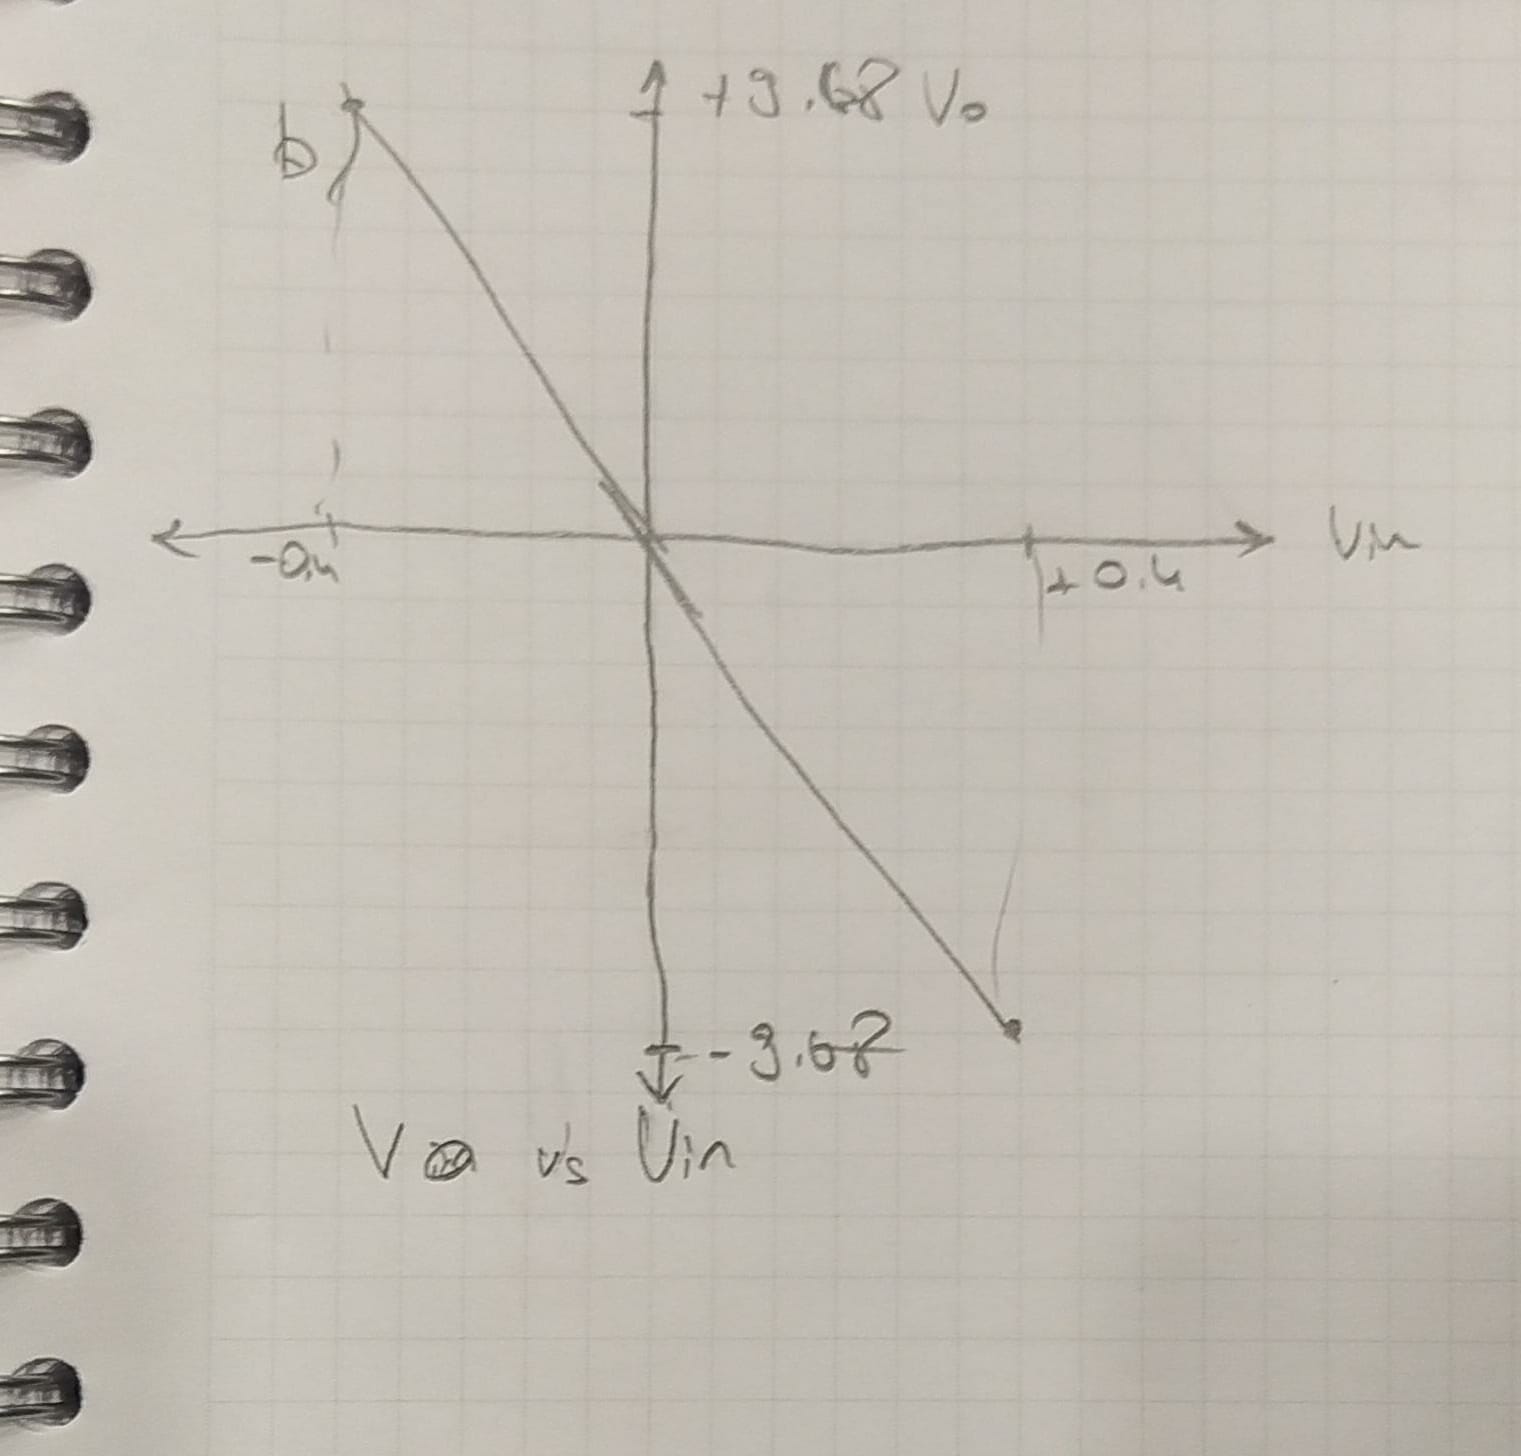 b) +3.68 Vo
-0.4 +0.4 Vin
-3.68
Vo vs Vin